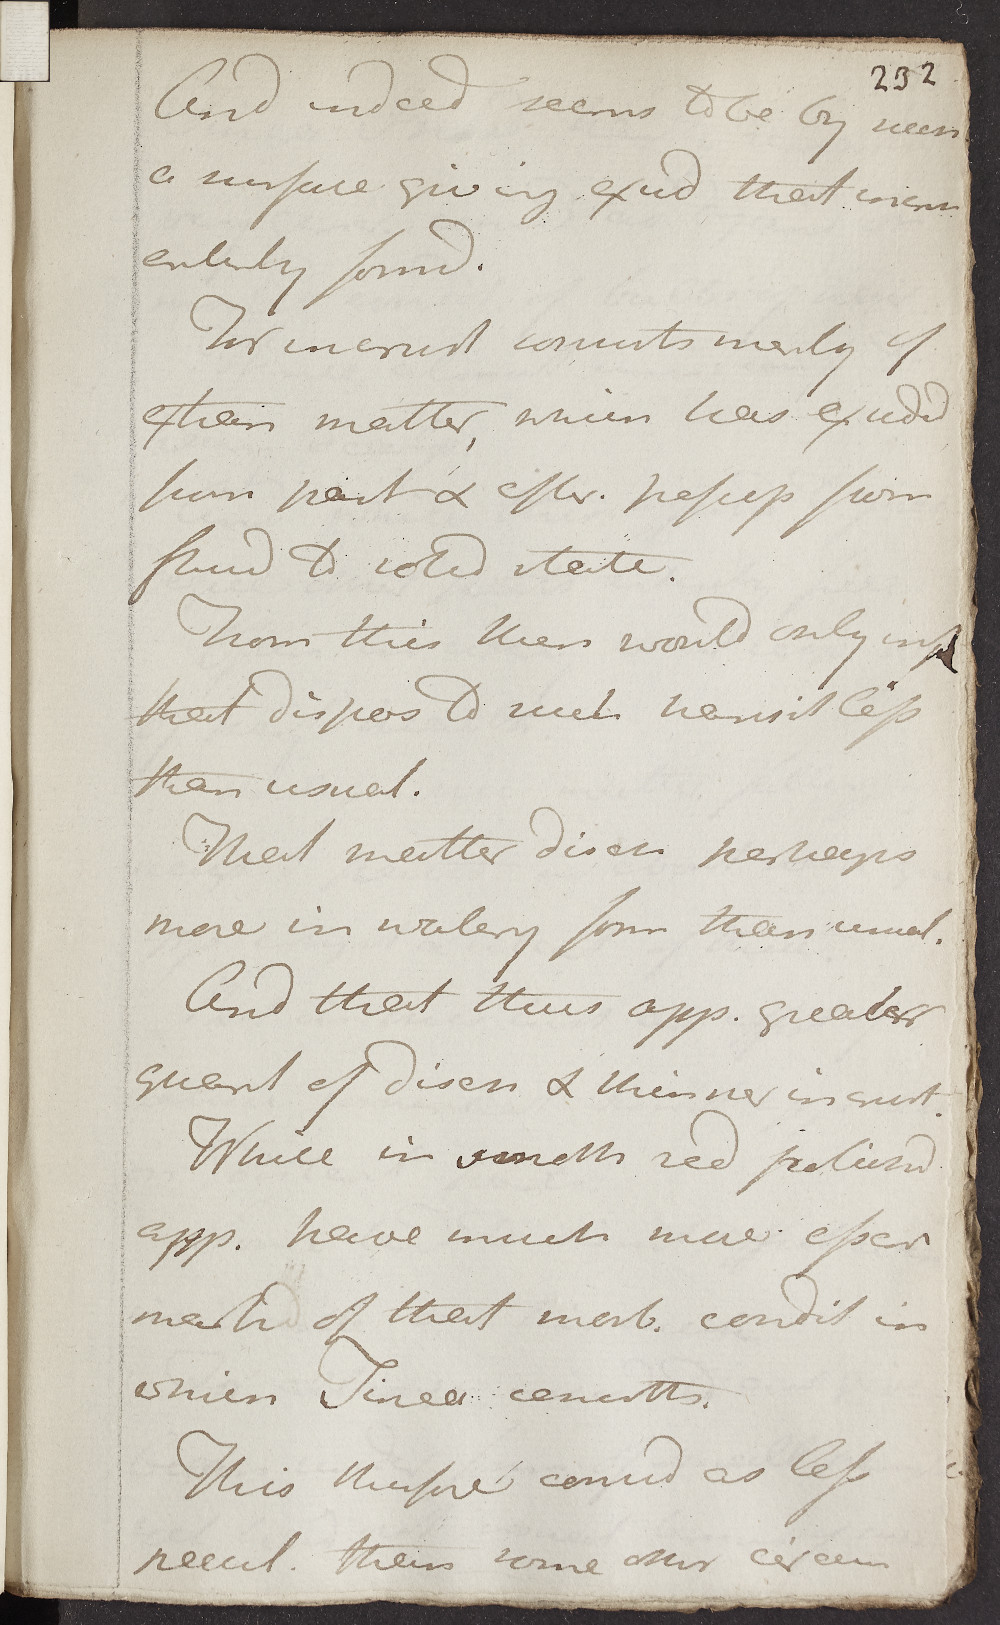 232
And indeed seems to be by means
a surface giving exud that incrus
entirely formd.
For incrust consists merely of
extran matter, which has exuded
from part & after. passes from
fluid to solid state.
From this then would only infer
that dispos to such transit less
than usual.
That matter disch perhaps
more in watery form than usual.
And that thus app. greater
quant of disch & thinner incrust.
While in smooth red polishd
app. have much more
markd of that morb. condit in
which Tinea consists.
This therefore consid as less
pecul. than some other circum